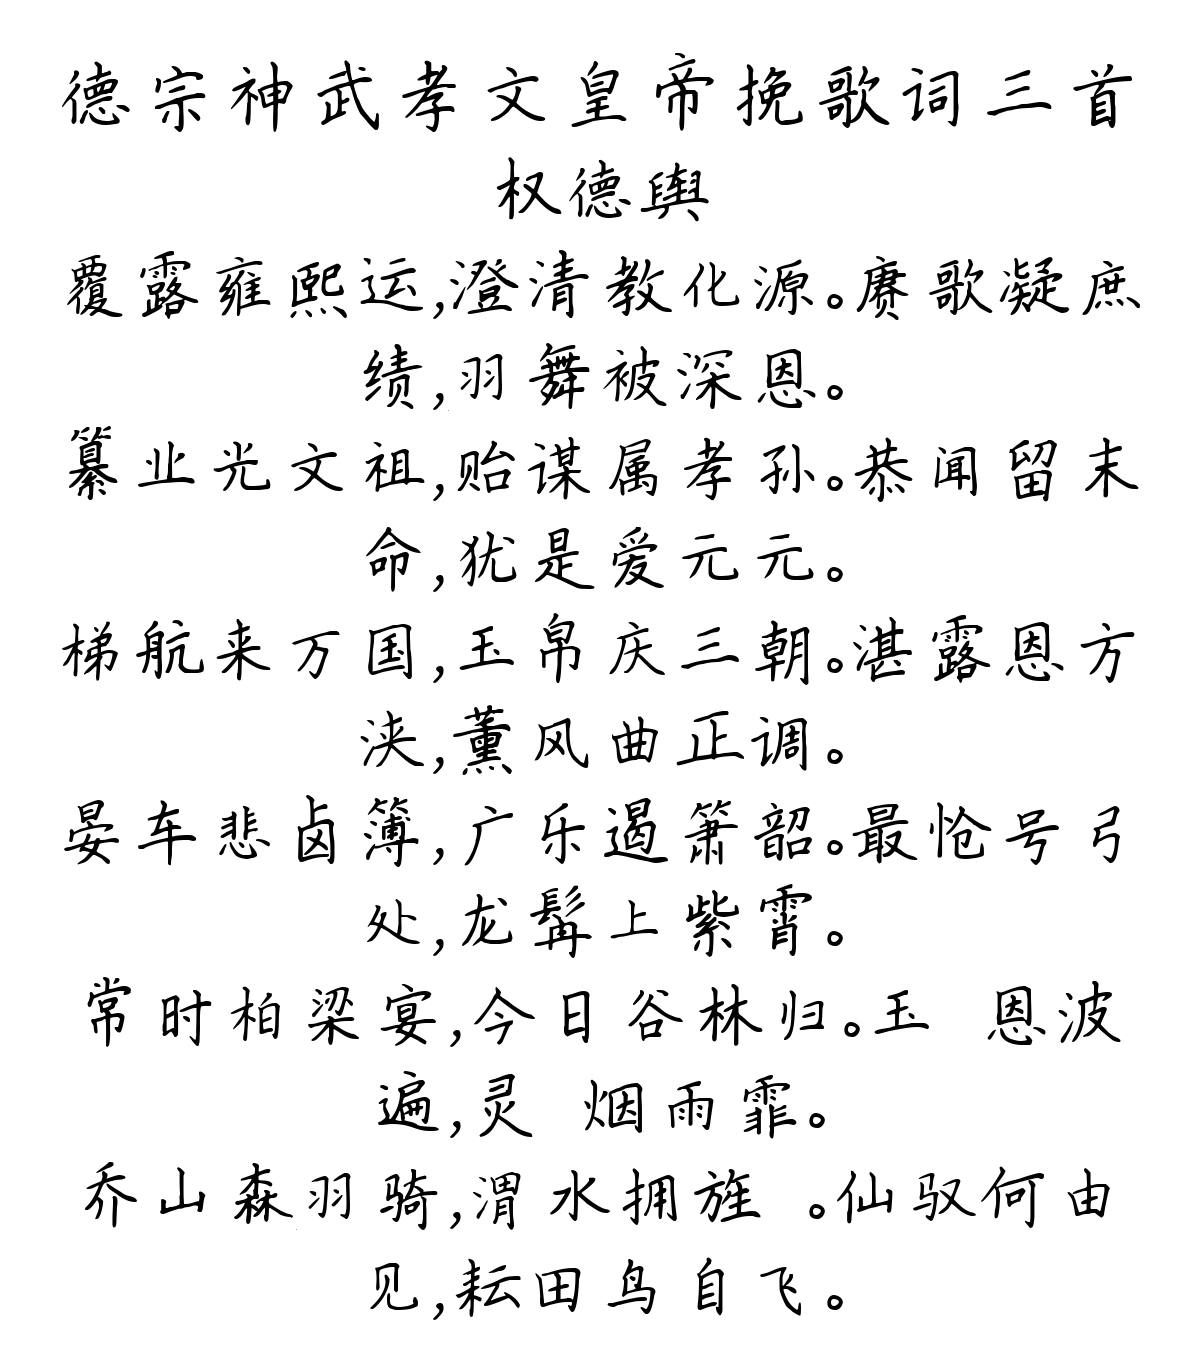 德宗神武孝文皇帝挽歌词三首
权德舆
覆露雍熙运,澄清教化源。赓歌凝庶
绩,羽舞被深恩。
纂业光文祖,贻谋属孝孙。恭闻留末
命,犹是爱元元。
梯航来万国,玉帛庆三朝。湛露恩方
浃,薰风曲正调。
晏车悲卤簿,广乐遏箫韶。最怆号弓
处,龙髯上紫霄。
常时柏梁宴,今日谷林归。玉 恩波
遍,灵 烟雨霏。
乔山森羽骑,渭水拥旌 。仙驭何由
见,耘田鸟自飞。